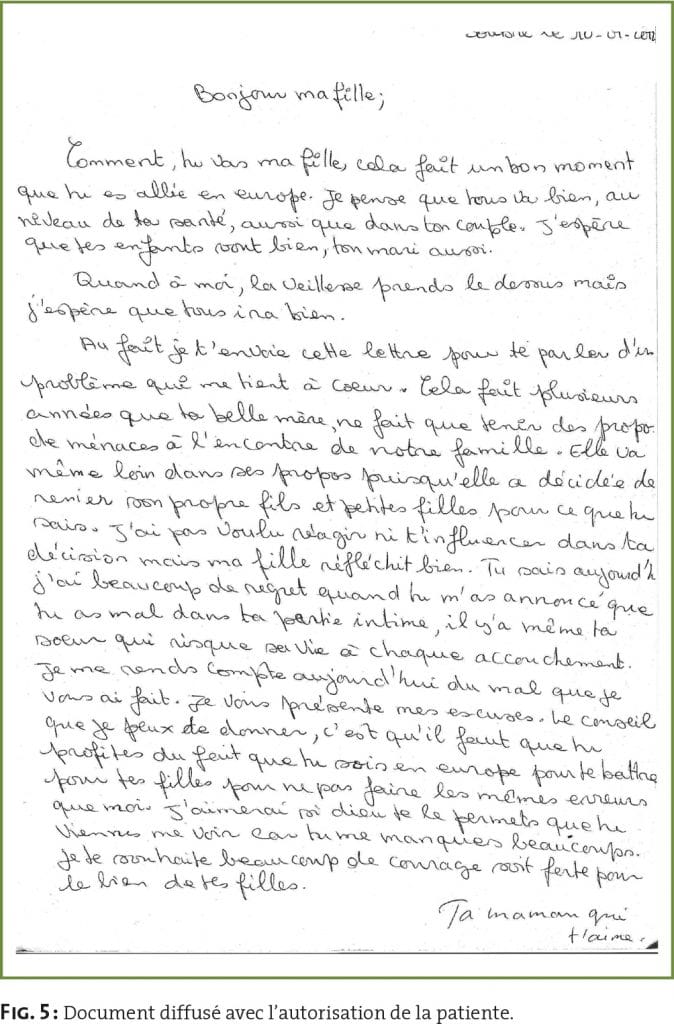 le 10-01-2012
Bonjour ma fille;
Comment, tu vas ma fille, cela fait un bon moment
que tu es allée en europe. Je pense que tous va bien, au
niveau de ta santé, aussi que dans ton couple. J'espère
que tes enfants vont bien, ton mari aussi.
Quand à moi, la veillesse prends le dessus mais
j'espère que tous ira bien.
Au fait je t'envoie cette lettre pour te parler d'un
problème qui me tient à coeur. Cela fait plusieurs
années que ta belle mère, ne fait que tenir des propo
de ménaces à l'encontre de notre famille. Elle va
même loin dans ses propos puisqu'elle a décidée de
renier son propre fils et petites filles pour ce que tu
sais. J'ai pas voulu réagir ni t'influencer dans ta
décision mais ma fille réfléchit bien. Tu sais aujourd'h
j'ai beaucoup de regret quand tu m'as annoncé que
tu as mal dans ta partie intime, il y'a même ta
soeur qui risque sa vie à chaque accouchement.
Je me rends compte aujourd'hui du mal que je
vous ai fait. Je vous présente mes escuses. Le conseil
que je peux te donner, c'est qu'il faut que tu
profites du fait que tu sois en europe pour te battre
pour tes filles pour ne pas faire les mêmes erreurs
que moi. J'aimerai si dieu te le permets que tu
viennes me voir car tu me manques beaucoups.
Je te souhaite beaucoup de courage soit forte pour
le bien de tes filles.
Ta maman qui
t'aime.
FIG. 5 : Document diffusé avec l'autorisation de la patiente.